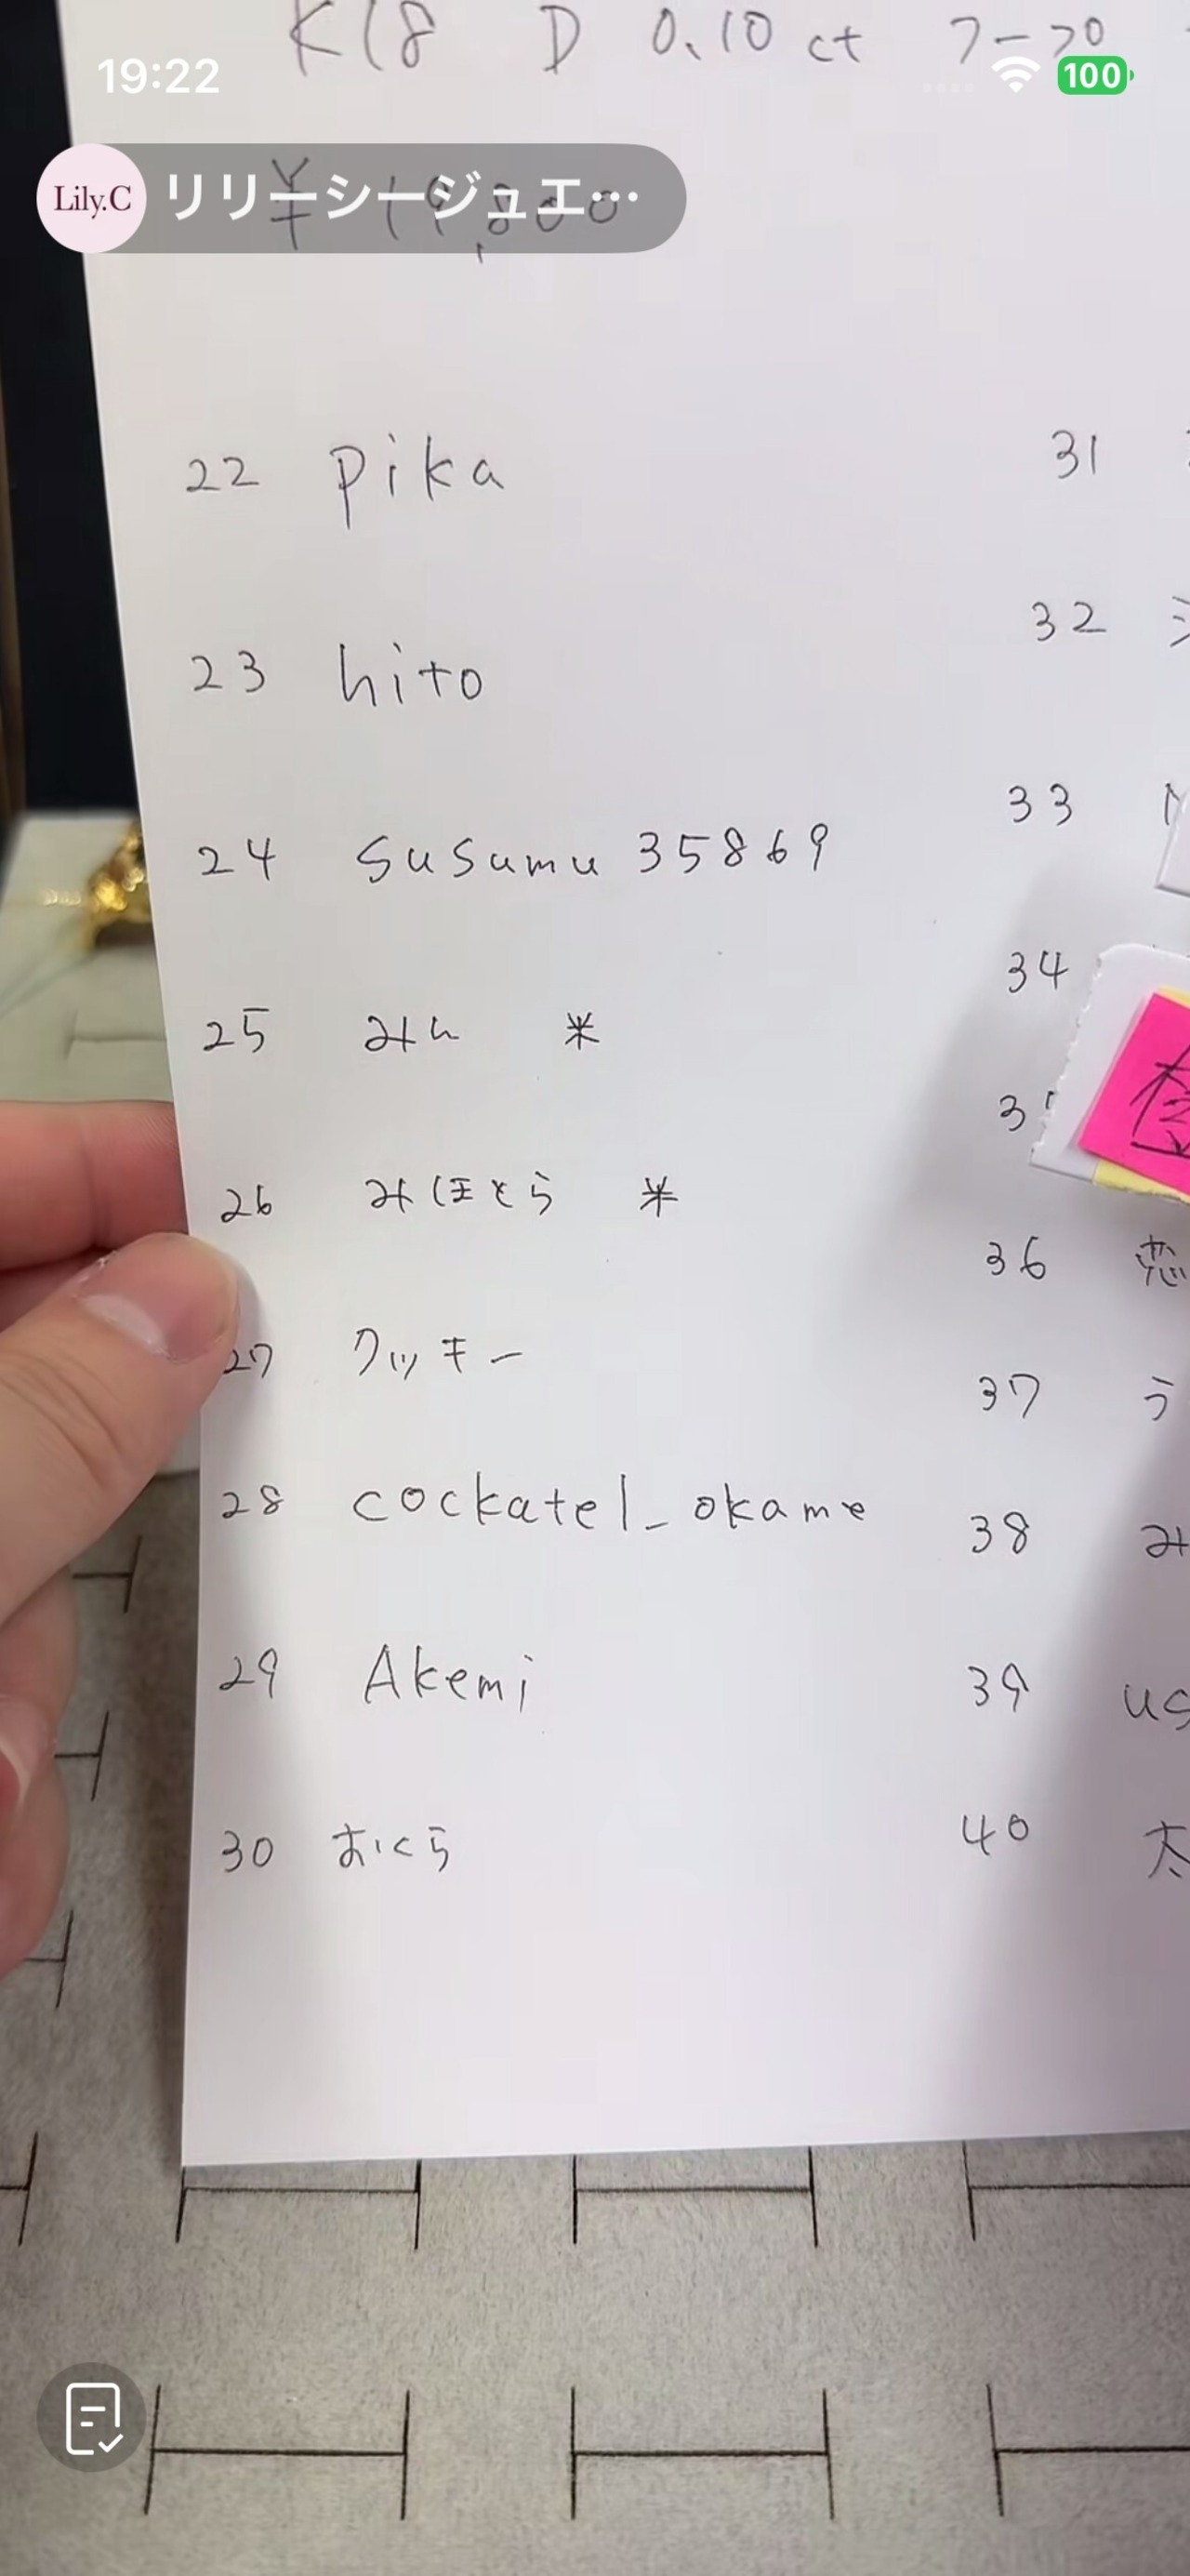 K18 D 0.10ct フープ
19:22
100
Lily.C リリーシージュエ…
¥19,800
22 pika
23 hito
24 susumu 35869
25 みん ※
26 みほとら ※
27 クッキー
28 cockatel_okame
29 Akemi
30 おくら
31
32
33
34
36
37 う
38 み
39 us
40 太